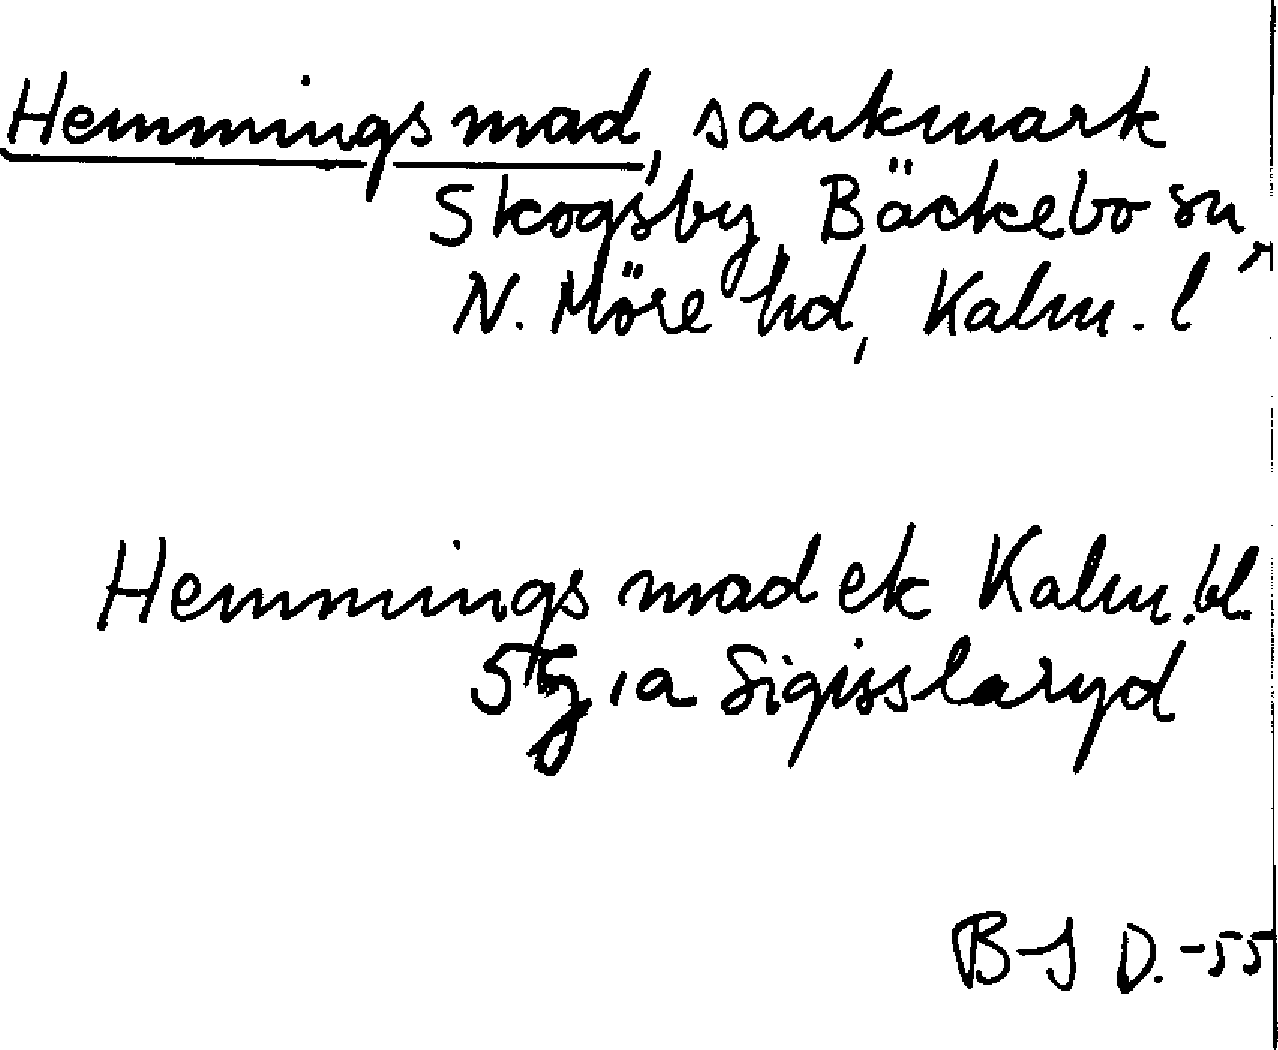 Hemmings mad, sankmark
Skogsby, Bäckebo sn,
N. Möre hd, Kalm. l
Hemmings mad ek Kalm. bl.
5 g, a Sigisslaryd
B-J D. -55